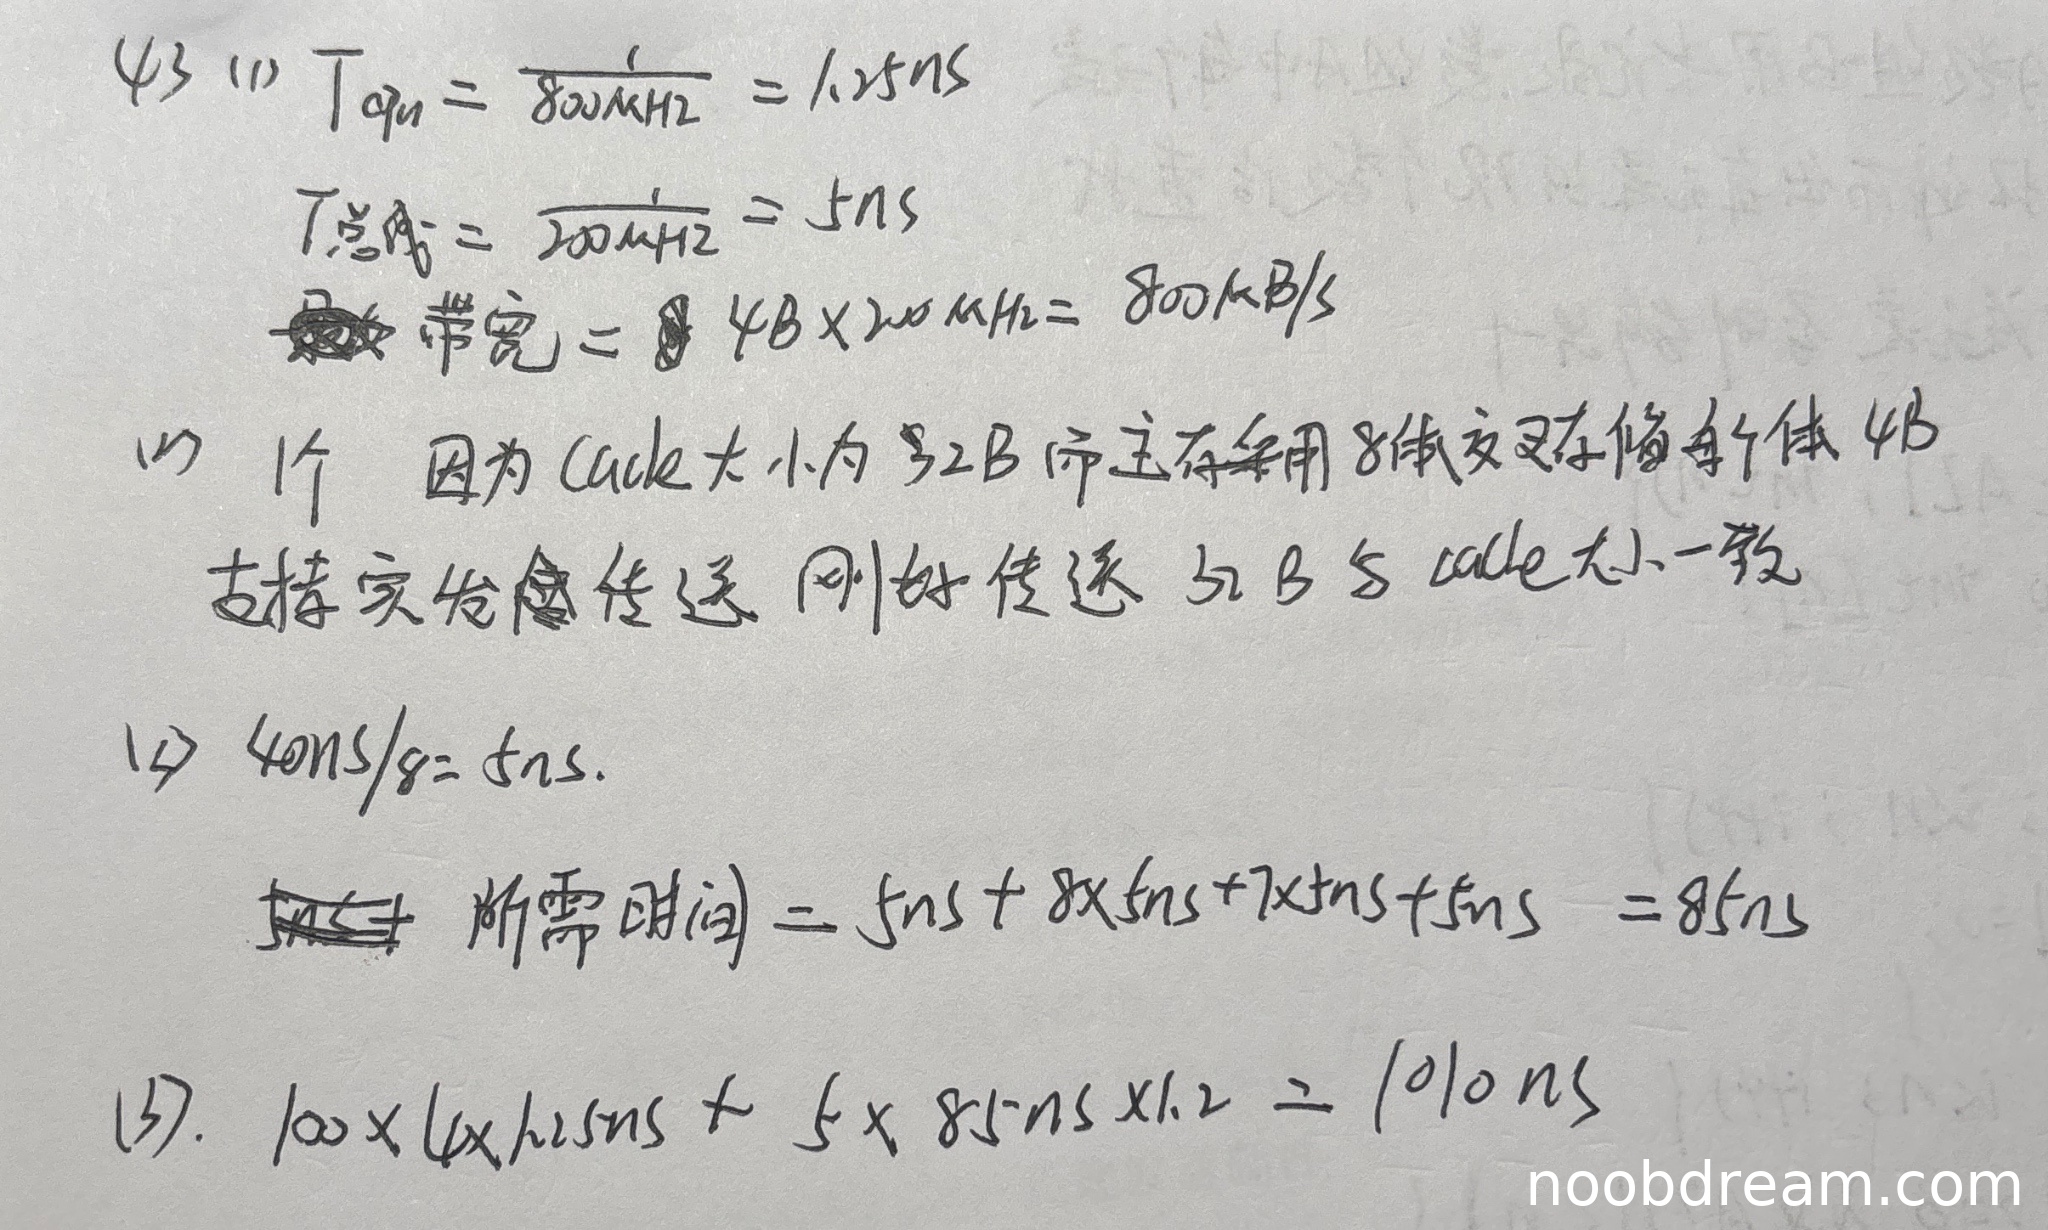 43 (1) Tcpu = 1/800MHz = 1.25ns
T总线 = 1/200MHz = 5ns
带宽 = 4B×200MHz = 800MB/s
(2) 1个 因为Cache大小为32B 而主存采用8体交叉存储每个体4B
支持突发传送 刚好传送 32B与cache大小一致
(3) 40ns/8=5ns.
所需时间 = 5ns + 8×5ns+7×5ns+5ns = 85ns
(3). 100×4×1.25ns + 5×85ns×1.2 = 1010ns
noobdream.com